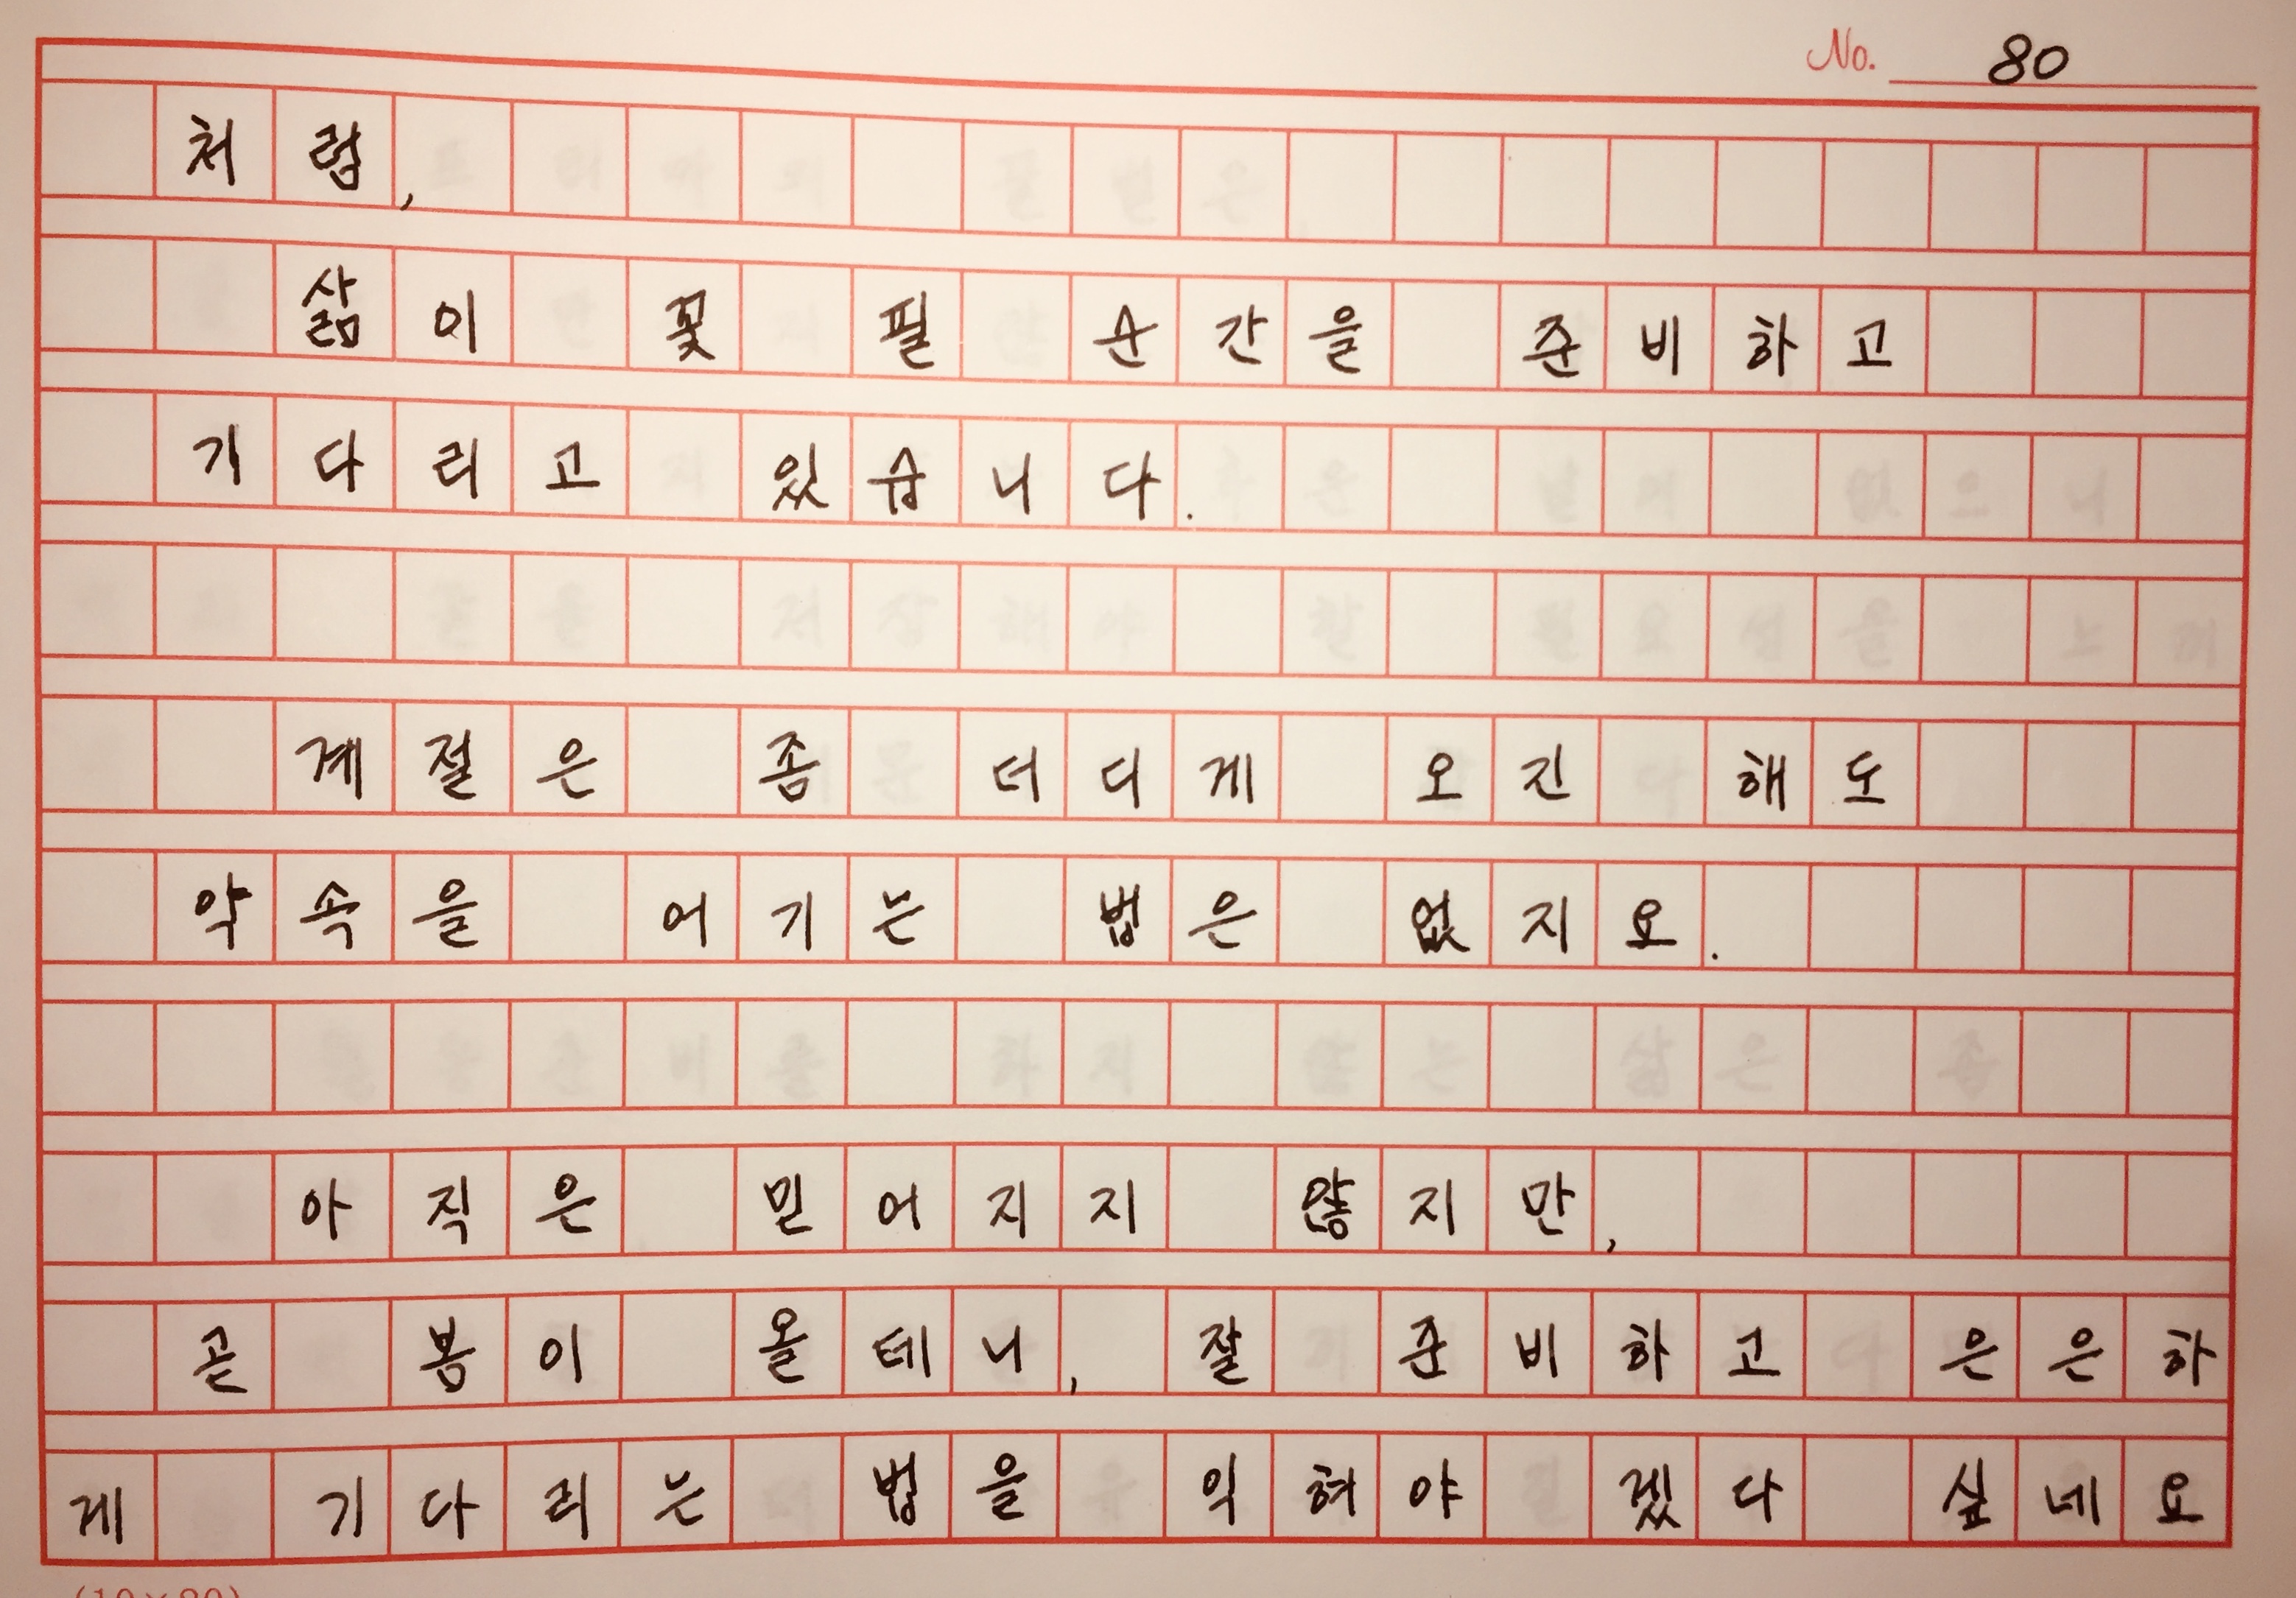 No. 80
처럼,
삶이 꽃 필 순간을 준비하고
기다리고 있습니다.
계절은 좀 더디게 오긴 해도
약속을 어기는 법은 없지요.
아직은 믿어지지 않지만,
곧 봄이 올테니, 잘 준비하고 은은하
게 기다리는 법을 익혀야 겠다 싶네요